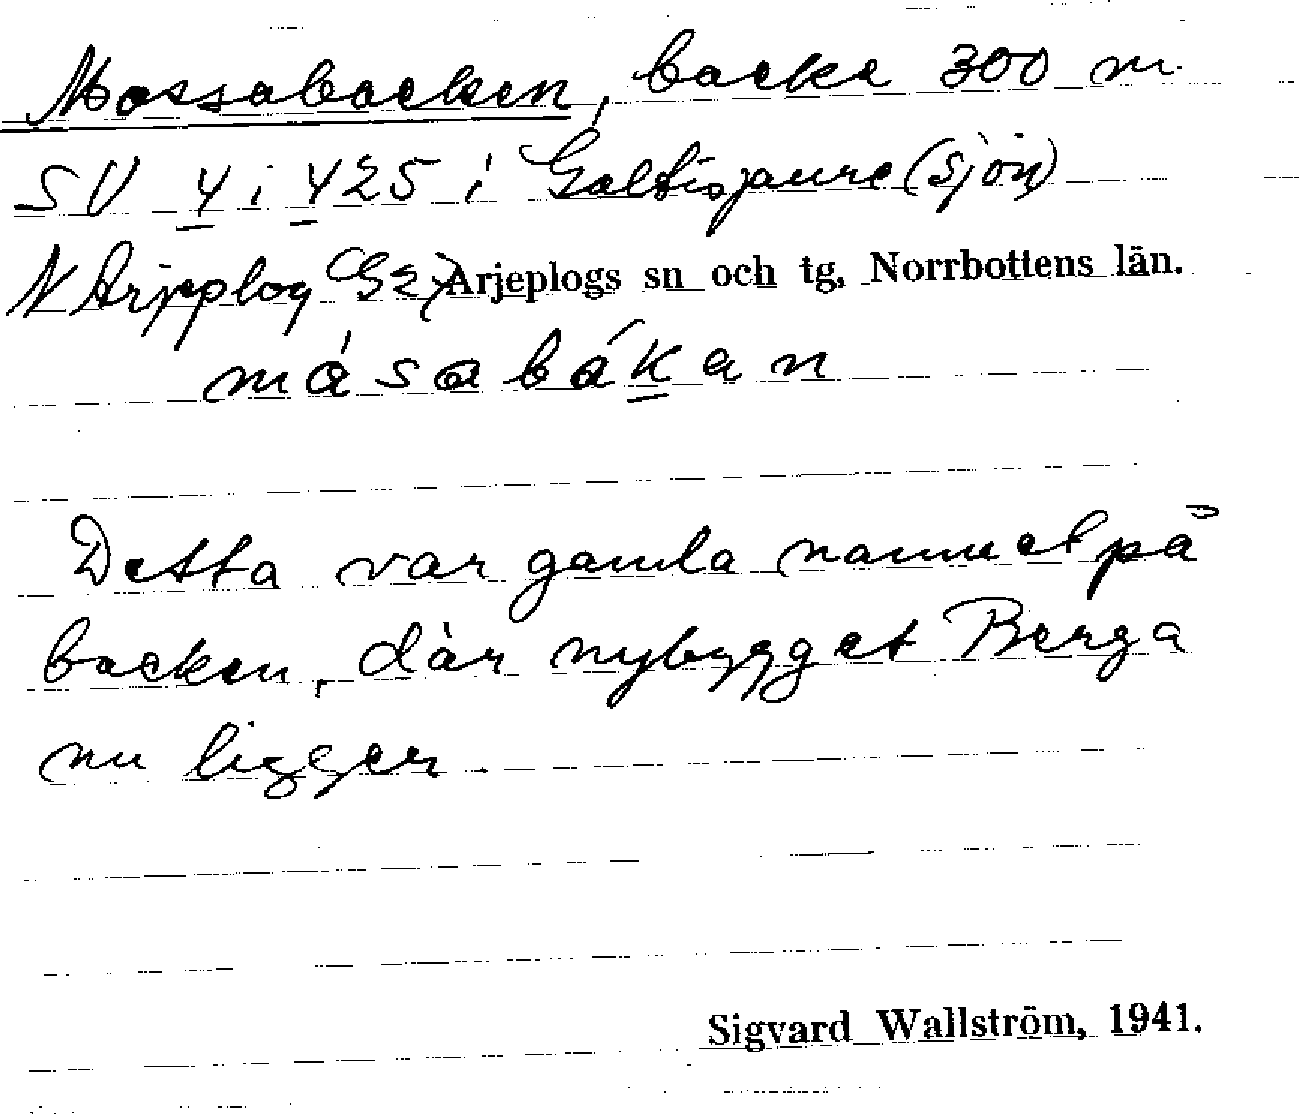 Mossabacken, backe 300 m
SV 4 i 425 i Galtisjaure (sjön)
N Arjeplog Arjeplogs sn och tg, Norrbottens län.
måsabákan
Detta var gamla namnet på
backen, där nybygget Berga
nu ligger.
Sigvard Wallström, 1941.